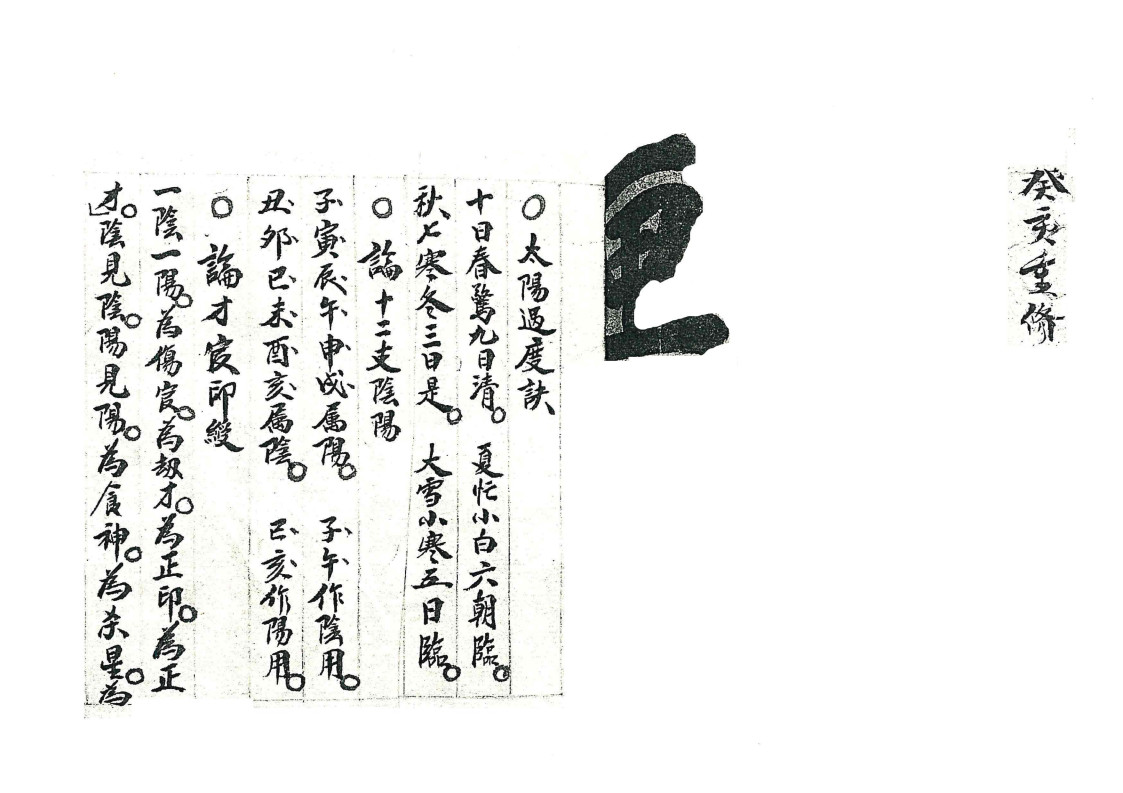 癸亥重脩
○太陽過度訣
十日春驚九日清。夏忙小白六朝臨。
秋七寒冬三日是。大雪小寒五日臨。
○論十二支陰陽
子寅辰午申戌屬陽。子午作陰用。
丑卯巳未酉亥屬陰。巳亥作陽用。
○論才官印綬
一陰一陽。為傷官。為刼才。為正印。為正
才。陰見陰。陽見陽。為食神。為杀星。為